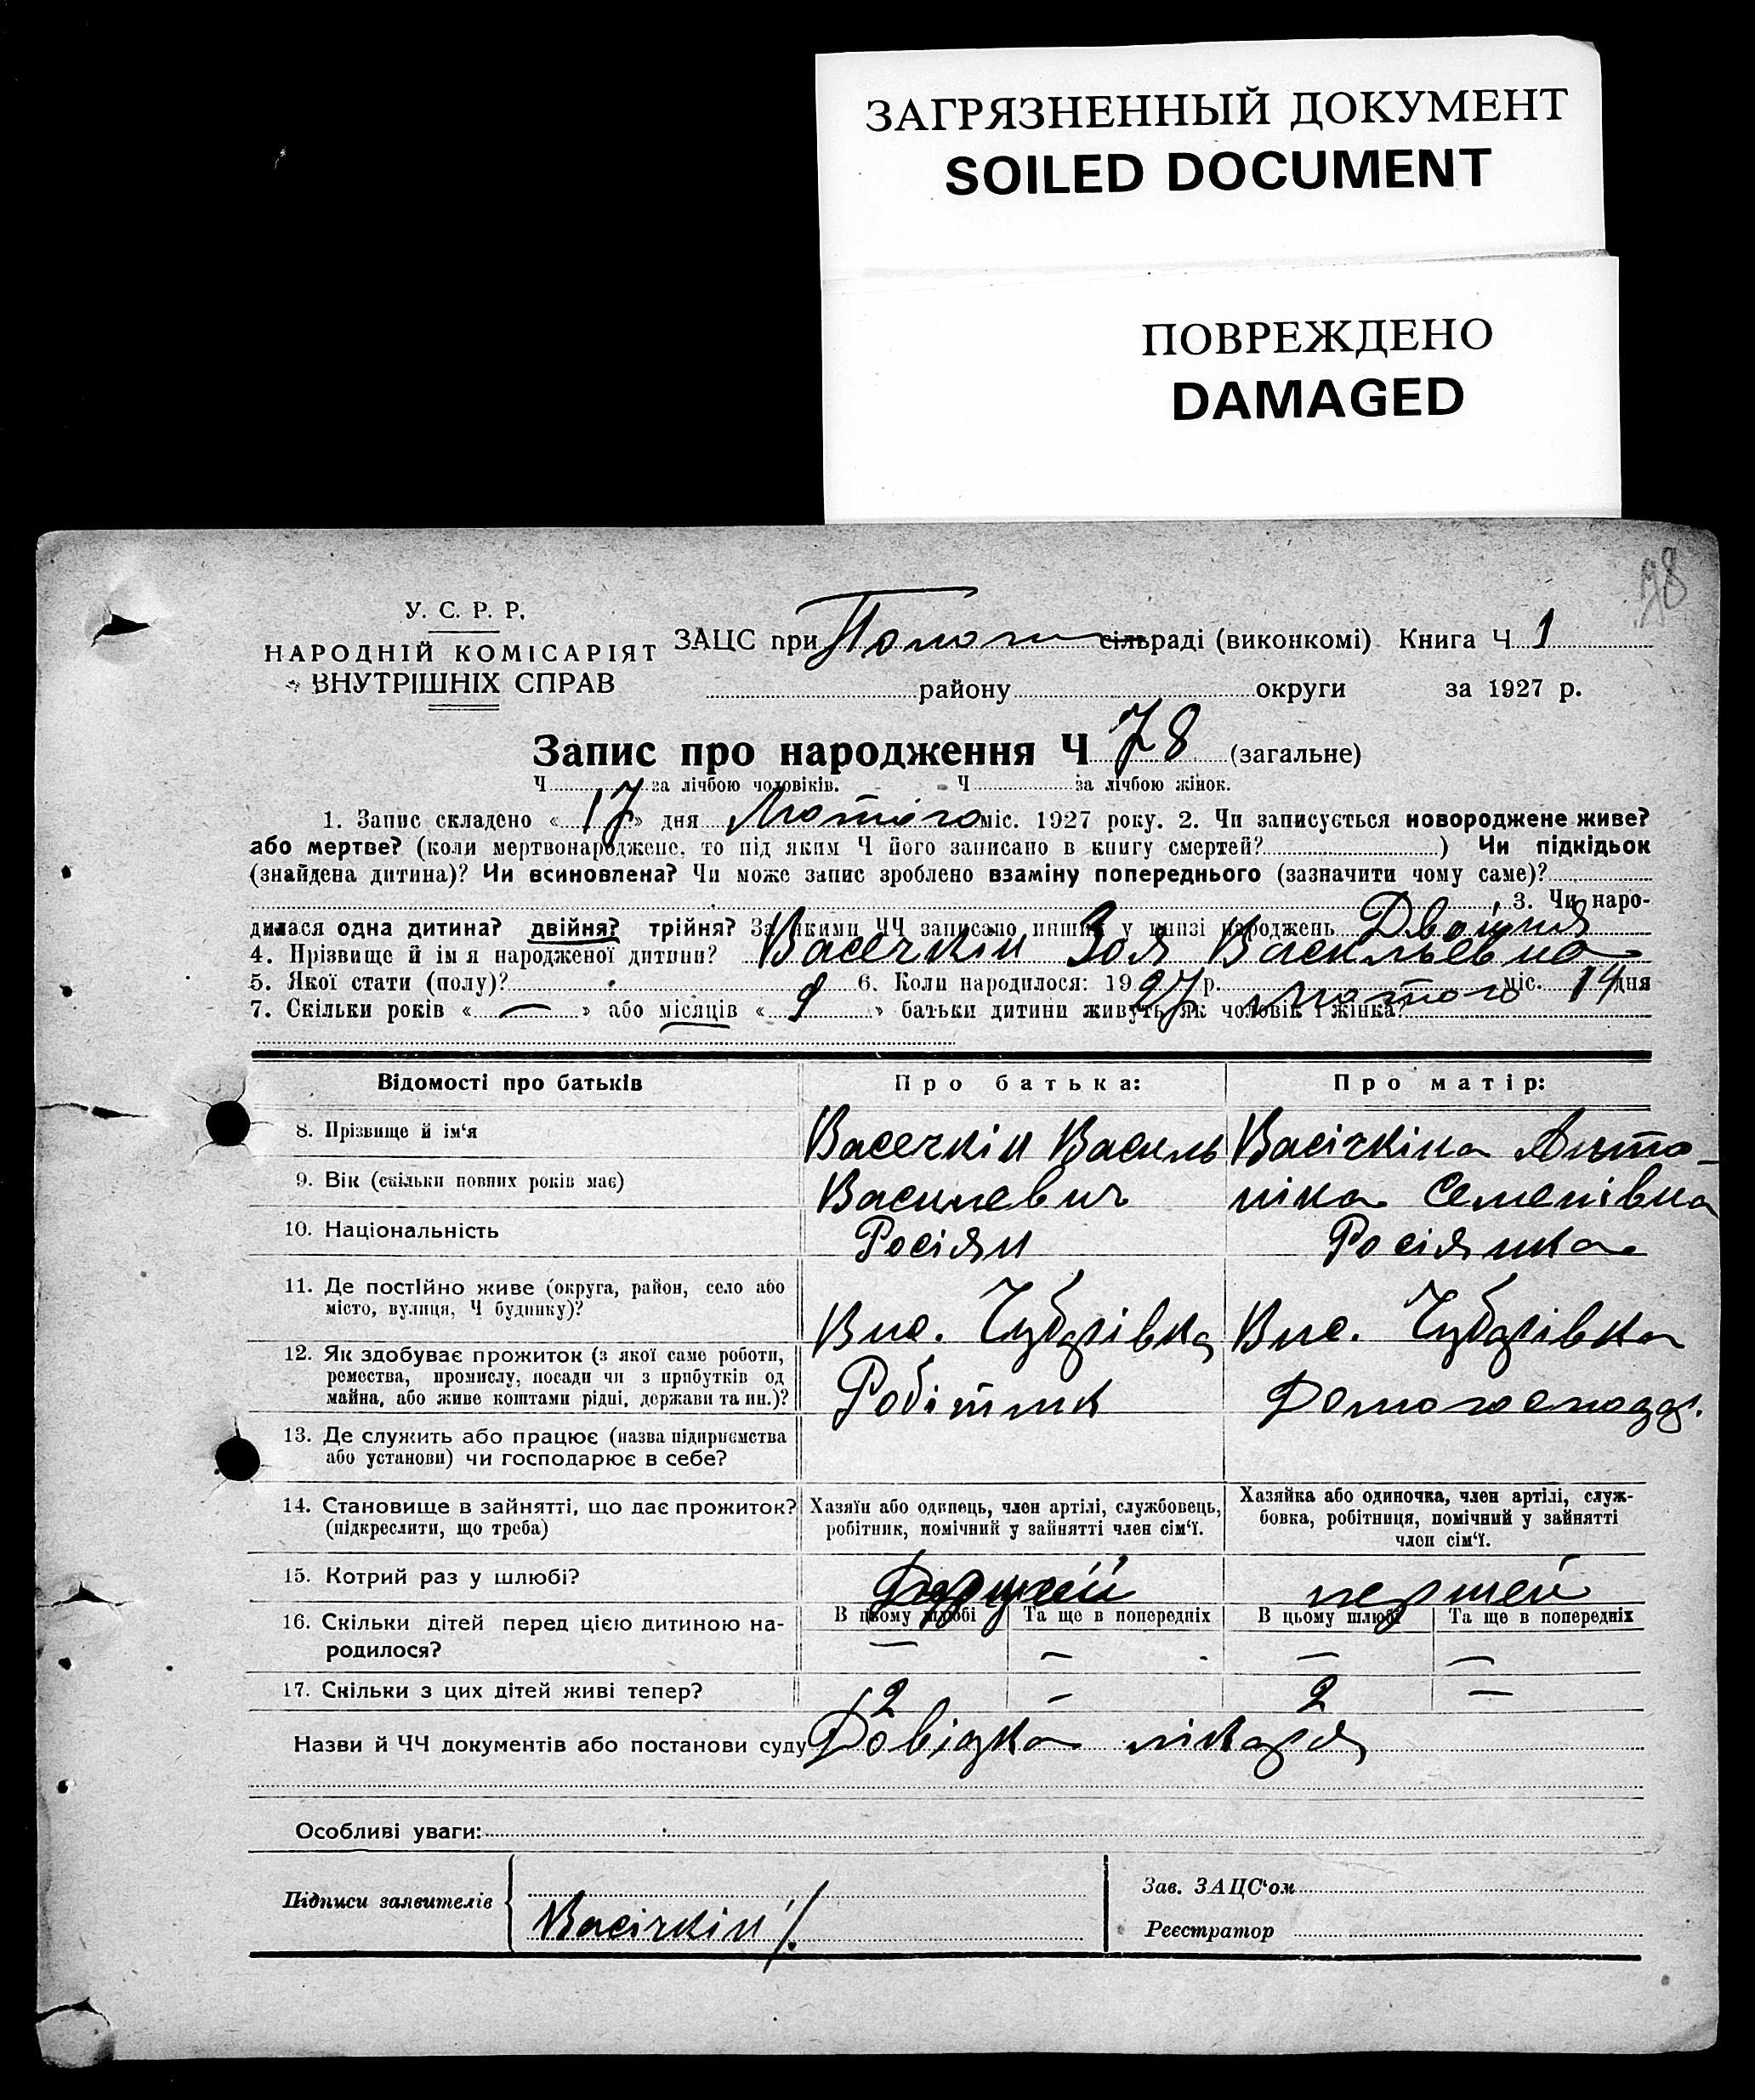 ЗАГРЯЗНЕННЫЙ ДОКУМЕНТ
SOILED DOCUMENT
ПОВРЕЖДЕНО
DAMAGED
78
У. С. Р. Р.
НАРОДНІЙ КОМІСАРІЯТ
ВНУТРІШНІХ СПРАВ
ЗАЦС при Пологи сільраді (виконкомі) Книга Ч 1
району округи за 1927 р.
Запис про народження Ч 78 (загальне)
Ч за лічбою чоловіків. Ч за лічбою жінок.
1. Запис складено « 17 » дня Лютого міс. 1927 року. 2. Чи записується новороджене живе?
або мертве? (коли мертвонароджене, то під яким Ч його записано в книгу смертей? ) Чи підкідьок
(знайдена дитина)? Чи всиновлена? Чи може запис зроблено взаміну попереднього (зазначити чому саме)?
3. Чи наро-
дилася одна дитина? двійня? трійня? За якими ЧЧ записано инших у книзі народжень Двойня
4. Прізвище й імя народженої дитини? Васечкін Зоя Васильевна
5. Якої стати (полу)? 6. Коли народилося: 1927 р. Лютого міс. 14 дня
7. Скільки років « — » або місяців « 9 » батьки дитини живуть як чоловік і жінка?
Відомості про батьків Про батька: Про матір:
8. Прізвище й ім'я Васечкін Василь Васічкіна Анто-
9. Вік (скільки повних років має) Васильевич ніна Семенівна
10. Національність Росіян Росіянка
11. Де постійно живе (округа, район, село або
місто, вулиця, Ч будинку)? Вис. Чубарівка Вис. Чубарівка
12. Як здобуває прожиток (з якої саме роботи,
ремества, промислу, посади чи з прибутків од
майна, або живе коштами рідні, держави та ин.)? Робітник Домогосподар.
13. Де служить або працює (назва підприємства
або установи) чи господарює в себе?
14. Становище в зайнятті, що дає прожиток?
(підкреслити, що треба)
Хазяїн або одинець, член артілі, службовець,
робітник, помічний у зайнятті член сім'ї.
Хазяйка або одиночка, член артілі, служ-
бовка, робітниця, помічний у зайнятті
член сім'ї.
15. Котрий раз у шлюбі? першей
В цьому шлюбі Та ще в попередніх В цьому шлюбі Та ще в попередніх
16. Скільки дітей перед цією дитиною на-
родилося? — — — —
17. Скільки з цих дітей живі тепер? 2 — 2 —
Назви й ЧЧ документів або постанови суду Довідка лікаря
Особливі уваги:
Підписи заявителів Васічкін
Зав. ЗАЦС'ом
Реєстратор